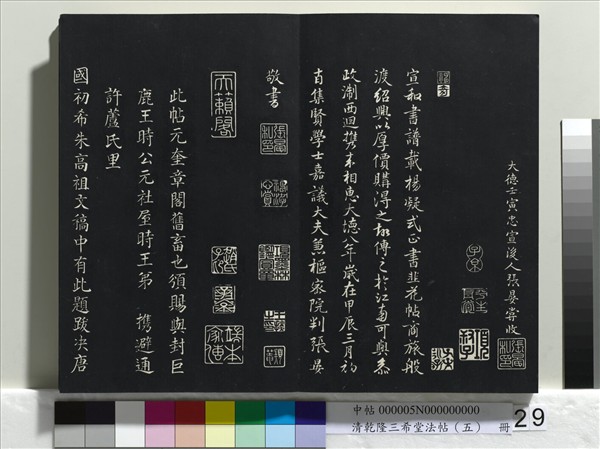 大德壬寅忠宣後人張晏寀收
宣和書譜載楊凝式正書韭花帖商旅般
渡紹興以厚價購得之故傳之於江南可與忝
政淛西迴攜來相惠大德八年歲在甲辰三月初
吉集賢學士嘉議大夫兼樞密院判張晏
敬書
天籟閣
此帖元奎章閣舊畜也頒賜與封巨
鹿王時公元社屋時王弟 攜避通
許蘆氏里
國初希朱高祖文稿中有此題跋決唐
中帖 000005N000000000
清乾隆三希堂法帖(五) 冊
29